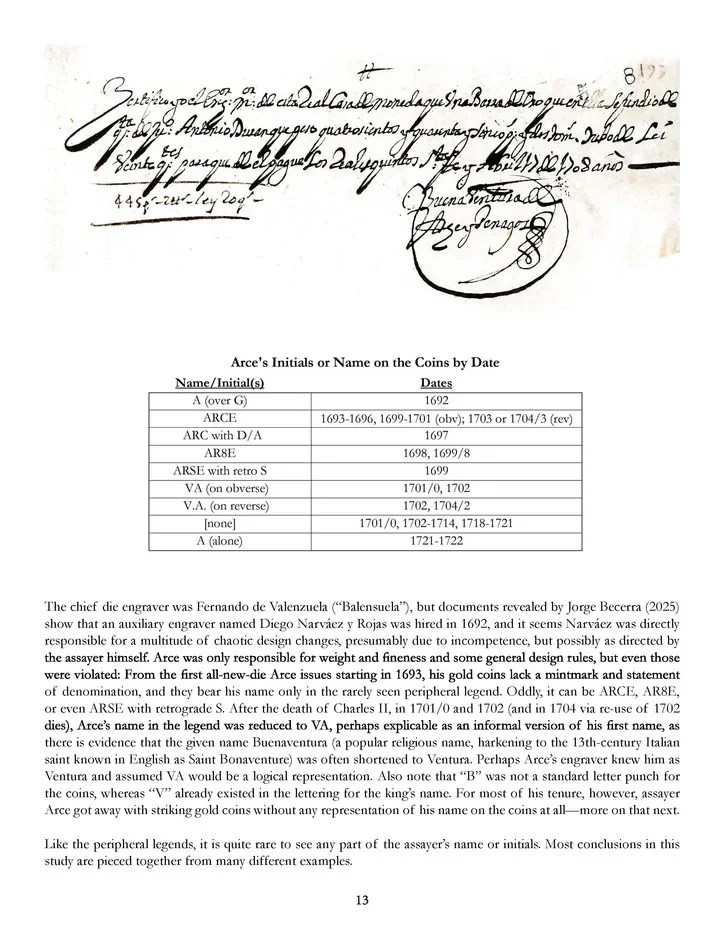 8193
Certifico yo el
de esta Real Casa de moneda que Una Barra de Oro que en ella se fundio de
Antonio Duran que peso quatrosientos y quarenta y sinco
Veinte para que de el pague los Reales quintos Abril 17 de 1708 años
445 ley 20
Buena Ventura de
Arze y Penagos
Arce's Initials or Name on the Coins by Date
Name/Initial(s) Dates
A (over G) 1692
ARCE 1693-1696, 1699-1701 (obv); 1703 or 1704/3 (rev)
ARC with D/A 1697
AR8E 1698, 1699/8
ARSE with retro S 1699
VA (on obverse) 1701/0, 1702
V.A. (on reverse) 1702, 1704/2
[none] 1701/0, 1702-1714, 1718-1721
A (alone) 1721-1722
The chief die engraver was Fernando de Valenzuela (“Balensuela”), but documents revealed by Jorge Becerra (2025)
show that an auxiliary engraver named Diego Narváez y Rojas was hired in 1692, and it seems Narváez was directly
responsible for a multitude of chaotic design changes, presumably due to incompetence, but possibly as directed by
the assayer himself. Arce was only responsible for weight and fineness and some general design rules, but even those
were violated: From the first all-new-die Arce issues starting in 1693, his gold coins lack a mintmark and statement
of denomination, and they bear his name only in the rarely seen peripheral legend. Oddly, it can be ARCE, AR8E,
or even ARSE with retrograde S. After the death of Charles II, in 1701/0 and 1702 (and in 1704 via re-use of 1702
dies), Arce’s name in the legend was reduced to VA, perhaps explicable as an informal version of his first name, as
there is evidence that the given name Buenaventura (a popular religious name, harkening to the 13th-century Italian
saint known in English as Saint Bonaventure) was often shortened to Ventura. Perhaps Arce’s engraver knew him as
Ventura and assumed VA would be a logical representation. Also note that “B” was not a standard letter punch for
the coins, whereas “V” already existed in the lettering for the king’s name. For most of his tenure, however, assayer
Arce got away with striking gold coins without any representation of his name on the coins at all—more on that next.
Like the peripheral legends, it is quite rare to see any part of the assayer’s name or initials. Most conclusions in this
study are pieced together from many different examples.
13